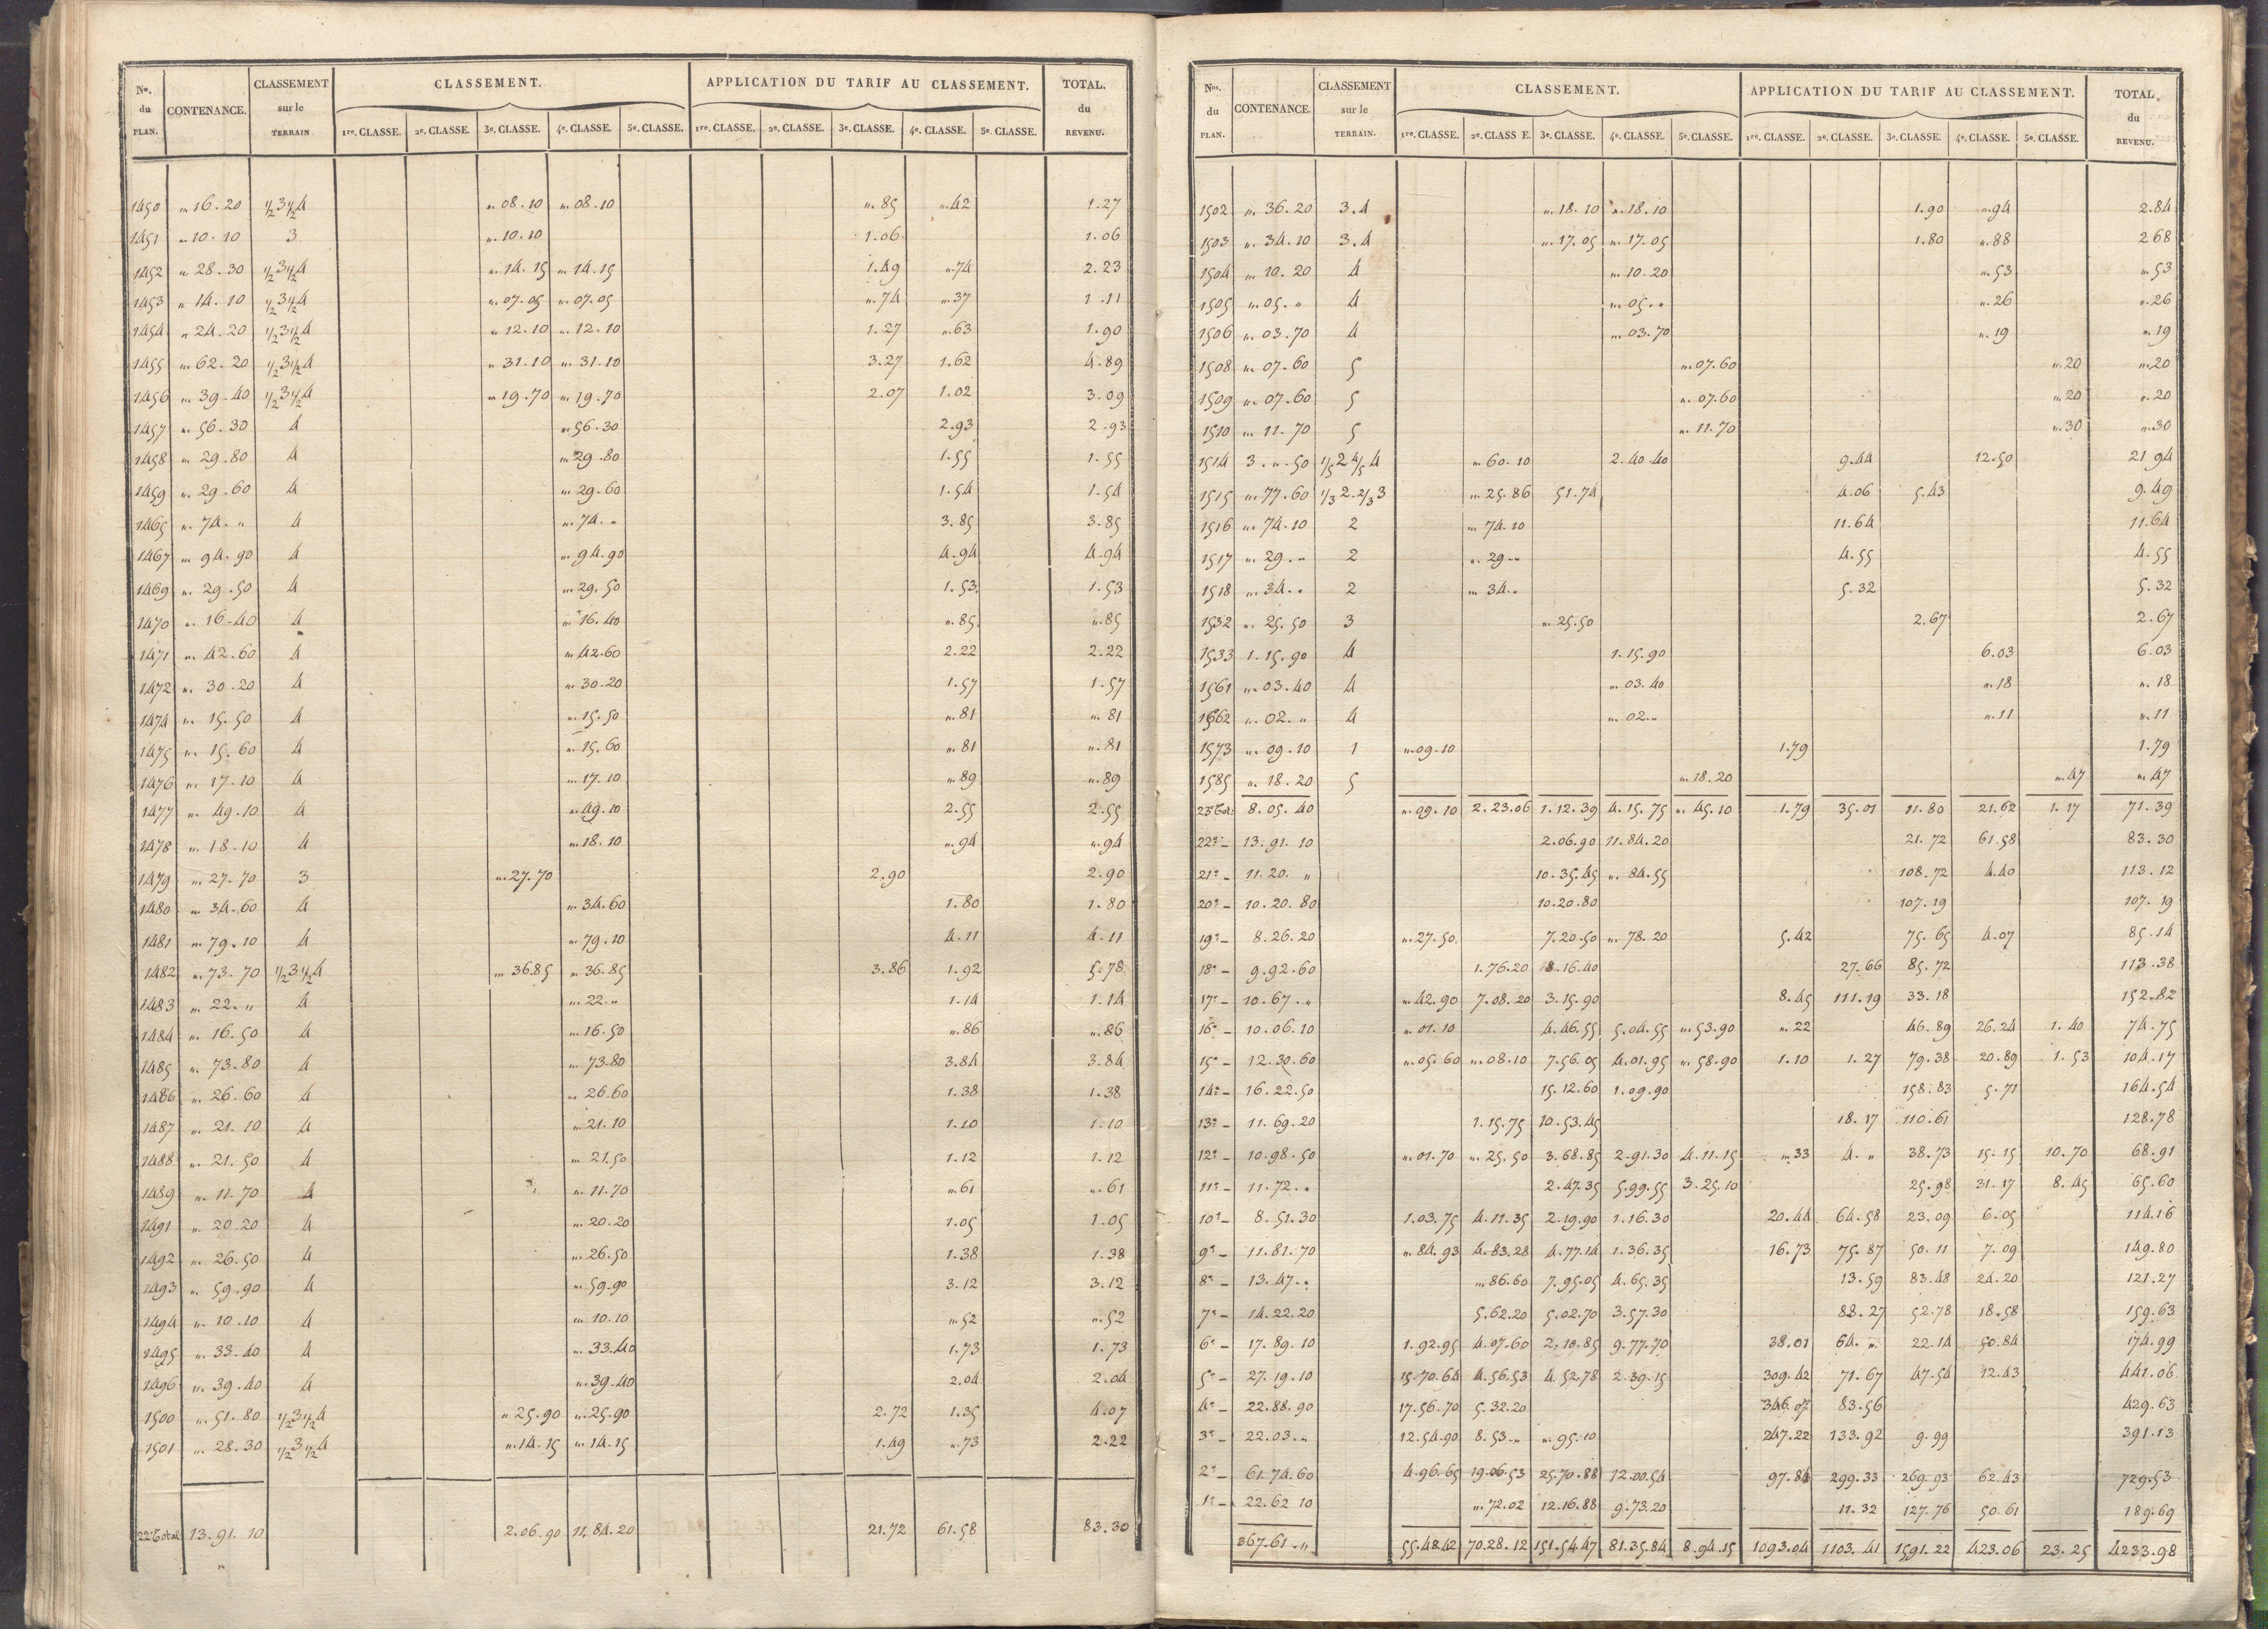 No. du PLAN. CONTENANCE. CLASSEMENT sur le TERRAIN CLASSEMENT. APPLICATION DU TARIF AU CLASSEMENT. TOTAL. du REVENU.
1re. CLASSE. 2e. CLASSE. 3e. CLASSE. 4e. CLASSE. 5e. CLASSE. 1re. CLASSE. 2e. CLASSE. 3e. CLASSE. 4e. CLASSE. 5e. CLASSE.
1450 " 16.20 1/2 3 1/2 4 " 08.10 " 08.10 ". 85 ". 42 1.27
1451 " 10.10 3 " 10.10 1.06 1.06
1452 " 28.30 1/2 3 1/2 4 " 14.15 " 14.15 1.49 ". 74 2.23
1453 " 14.10 1/2 3 1/2 4 " 07.05 " 07.05 ". 74 ". 37 1.11
1454 " 24.20 1/2 3 1/2 4 " 12.10 " 12.10 1.27 ". 63 1.90
1455 " 62.20 1/2 3 1/2 4 " 31.10 " 31.10 3.27 1.62 4.89
1456 " 39.40 1/2 3 1/2 4 " 19.70 " 19.70 2.07 1.02 3.09
1457 " 56.30 4 " 56.30 2.93 2.93
1458 " 29.80 4 " 29.80 1.55 1.55
1459 " 29.60 4 " 29.60 1.54 1.54
1465 " 74. " 4 " 74. " 3.85 3.85
1467 " 94.90 4 " 94.90 4.94 4.94
1469 " 29.50 4 " 29.50 1.53 1.53
1470 " 16.40 4 " 16.40 ". 85 ". 85
1471 " 42.60 4 " 42.60 2.22 2.22
1472 " 30.20 4 " 30.20 1.57 1.57
1474 " 15.50 4 " 15.50 ". 81 ". 81
1475 " 15.60 4 " 15.60 ". 81 ". 81
1476 " 17.10 4 " 17.10 ". 89 ". 89
1477 " 49.10 4 " 49.10 2.55 2.55
1478 " 18.10 4 " 18.10 ". 94 ". 94
1479 " 27.70 3 " 27.70 2.90 2.90
1480 " 34.60 4 " 34.60 1.80 1.80
1481 " 79.10 4 " 79.10 4.11 4.11
1482 " 73.70 1/2 3 1/2 4 " 36.85 " 36.85 3.86 1.92 5.78
1483 " 22. " 4 " 22. " 1.14 1.14
1484 " 16.50 4 " 16.50 ". 86 ". 86
1485 " 73.80 4 " 73.80 3.84 3.84
1486 " 26.60 4 " 26.60 1.38 1.38
1487 " 21.10 4 " 21.10 1.10 1.10
1488 " 21.50 4 " 21.50 1.12 1.12
1489 " 11.70 4 " 11.70 ". 61 ". 61
1491 " 20.20 4 " 20.20 1.05 1.05
1492 " 26.50 4 " 26.50 1.38 1.38
1493 " 59.90 4 " 59.90 3.12 3.12
1494 " 10.10 4 " 10.10 ". 52 ". 52
1495 " 33.40 4 " 33.40 1.73 1.73
1496 " 39.40 4 " 39.40 2.04 2.04
1500 " 51.80 1/2 3 1/2 4 " 25.90 " 25.90 2.72 1.35 4.07
1501 " 28.30 1/2 3 1/2 4 " 14.15 " 14.15 1.49 ". 73 2.22
22e Total 13.91.10 2.06.90 11.84.20 21.72 61.58 83.30
Nos. du PLAN. CONTENANCE. CLASSEMENT sur le TERRAIN. CLASSEMENT. APPLICATION DU TARIF AU CLASSEMENT. TOTAL. du REVENU.
1re. CLASSE. 2e. CLASS E. 3e. CLASSE. 4e. CLASSE. 5e. CLASSE. 1re. CLASSE. 2e. CLASSE. 3e. CLASSE. 4e. CLASSE. 5e. CLASSE.
1502 " 36.20 3.4 " 18.10 " 18.10 1.90 ". 94 2.84
1503 " 34.10 3.4 " 17.05 " 17.05 1.80 ". 88 2 68
1504 " 10.20 4 " 10.20 ". 53 ". 53
1505 " 05. " 4 " 05. " ". 26 ". 26
1506 " 03.70 4 " 03.70 ". 19 ". 19
1508 " 07.60 5 " 07.60 ". 20 ". 20
1509 " 07.60 5 " 07.60 ". 20 ". 20
1510 " 11.70 5 " 11.70 ". 30 ". 30
1514 3. ". 50 1/5 2 4/5 4 " 60.10 2.40.40 9.44 12.50 21 94
1515 " 77.60 1/3 2. 2/3 3 " 25.86 51.74 4.06 5.43 9.49
1516 " 74.10 2 " 74.10 11.64 11.64
1517 " 29. " 2 " 29. " 4.55 4.55
1518 " 34. " 2 " 34. " 5.32 5.32
1532 " 25.50 3 " 25.50 2.67 2.67
1533 1.15.90 4 1.15.90 6.03 6.03
1561 " 03.40 4 " 03.40 ". 18 ". 18
1562 " 02. " 4 " 02. " ". 11 ". 11
1573 " 09.10 1 " 09.10 1.79 1.79
1585 " 18.20 5 " 18.20 ". 47 ". 47
23e Tot: 8.05.40 " 09.10 2.23.06 1.12.39 4.15.75 " 45.10 1.79 35.01 11.80 21.62 1.17 71.39
22e - 13.91.10 2.06.90 11.84.20 21.72 61.58 83.30
21e - 11.20. " 10.35.45 " 84.55 108.72 4.40 113.12
20e - 10.20.80 10.20.80 107.19 107.19
19e - 8.26.20 " 27.50 7.20.50 " 78.20 5.42 75.65 4.07 85.14
18e - 9.92.60 1.76.20 8.16.40 27.66 85.72 113.38
17e - 10.67. " " 42.90 7.08.20 3.15.90 8.45 111.19 33.18 152.82
16e - 10.06.10 " 01.10 4.46.55 5.04.55 " 53.90 ". 22 46.89 26.24 1.40 74.75
15e - 12.30.60 " 05.60 " 08.10 7.56.05 4.01.95 " 58.90 1.10 1.27 79.38 20.89 1.53 104.17
14e - 16.22.50 15.12.60 1.09.90 158.83 5.71 164.54
13e - 11.69.20 1.15.75 10.53.45 18.17 110.61 128.78
12e - 10.98.50 " 01.70 " 25.50 3.68.85 2.91.30 4.11.15 ". 33 4. " 38.73 15.15 10.70 68.91
11e - 11.72. " 2.47.35 5.99.55 3.25.10 25.98 31.17 8.45 65.60
10e - 8.51.30 1.03.75 4.11.35 2.19.90 1.16.30 20.44 64.58 23.09 6.05 114.16
9e - 11.81.70 " 84.93 4.83.28 4.77.14 1.36.35 16.73 75.87 50.11 7.09 149.80
8e - 13.47. " " 86.60 7.95.05 4.65.35 13.59 83.48 24.20 121.27
7e - 14.22.20 5.62.20 5.02.70 3.57.30 88.27 52.78 18.58 159.63
6e - 17.89.10 1.92.95 4.07.60 2.10.85 9.77.70 38.01 64. " 22.14 50.84 174.99
5e - 27.19.10 15.70.64 4.56.53 4.52.78 2.39.15 309.42 71.67 47.54 12.43 441.06
4e - 22.88.90 17.56.70 5.32.20 346.07 83.56 429.63
3e - 22.03. " 12.54.90 8.53. " " 95.10 247.22 133.92 9.99 391.13
2e - 61.74.60 4.96.65 19.06.53 25.70.88 12.00.54 97.84 299.33 269.93 62.43 729.53
1e - 22.62 10 " 72.02 12.16.88 9.73.20 11.32 127.76 50.61 189.69
367.61. " 55.48.42 70.28.12 151.54.47 81.35.84 8.94.15 1093.04 1103.41 1591.22 423.06 23.25 4233.98